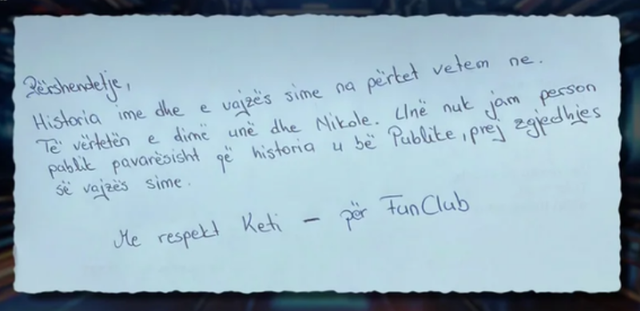 Përshendetje,
Historia ime dhe e vajzës sime na përket vetem ne.
Të vërtetën e dimë unë dhe Nikole. Unë nuk jam person
pablik pavarësisht që historia u bë Publike, prej zgjedhjes
së vajzës sime.
Me respekt Keti – për FanClub